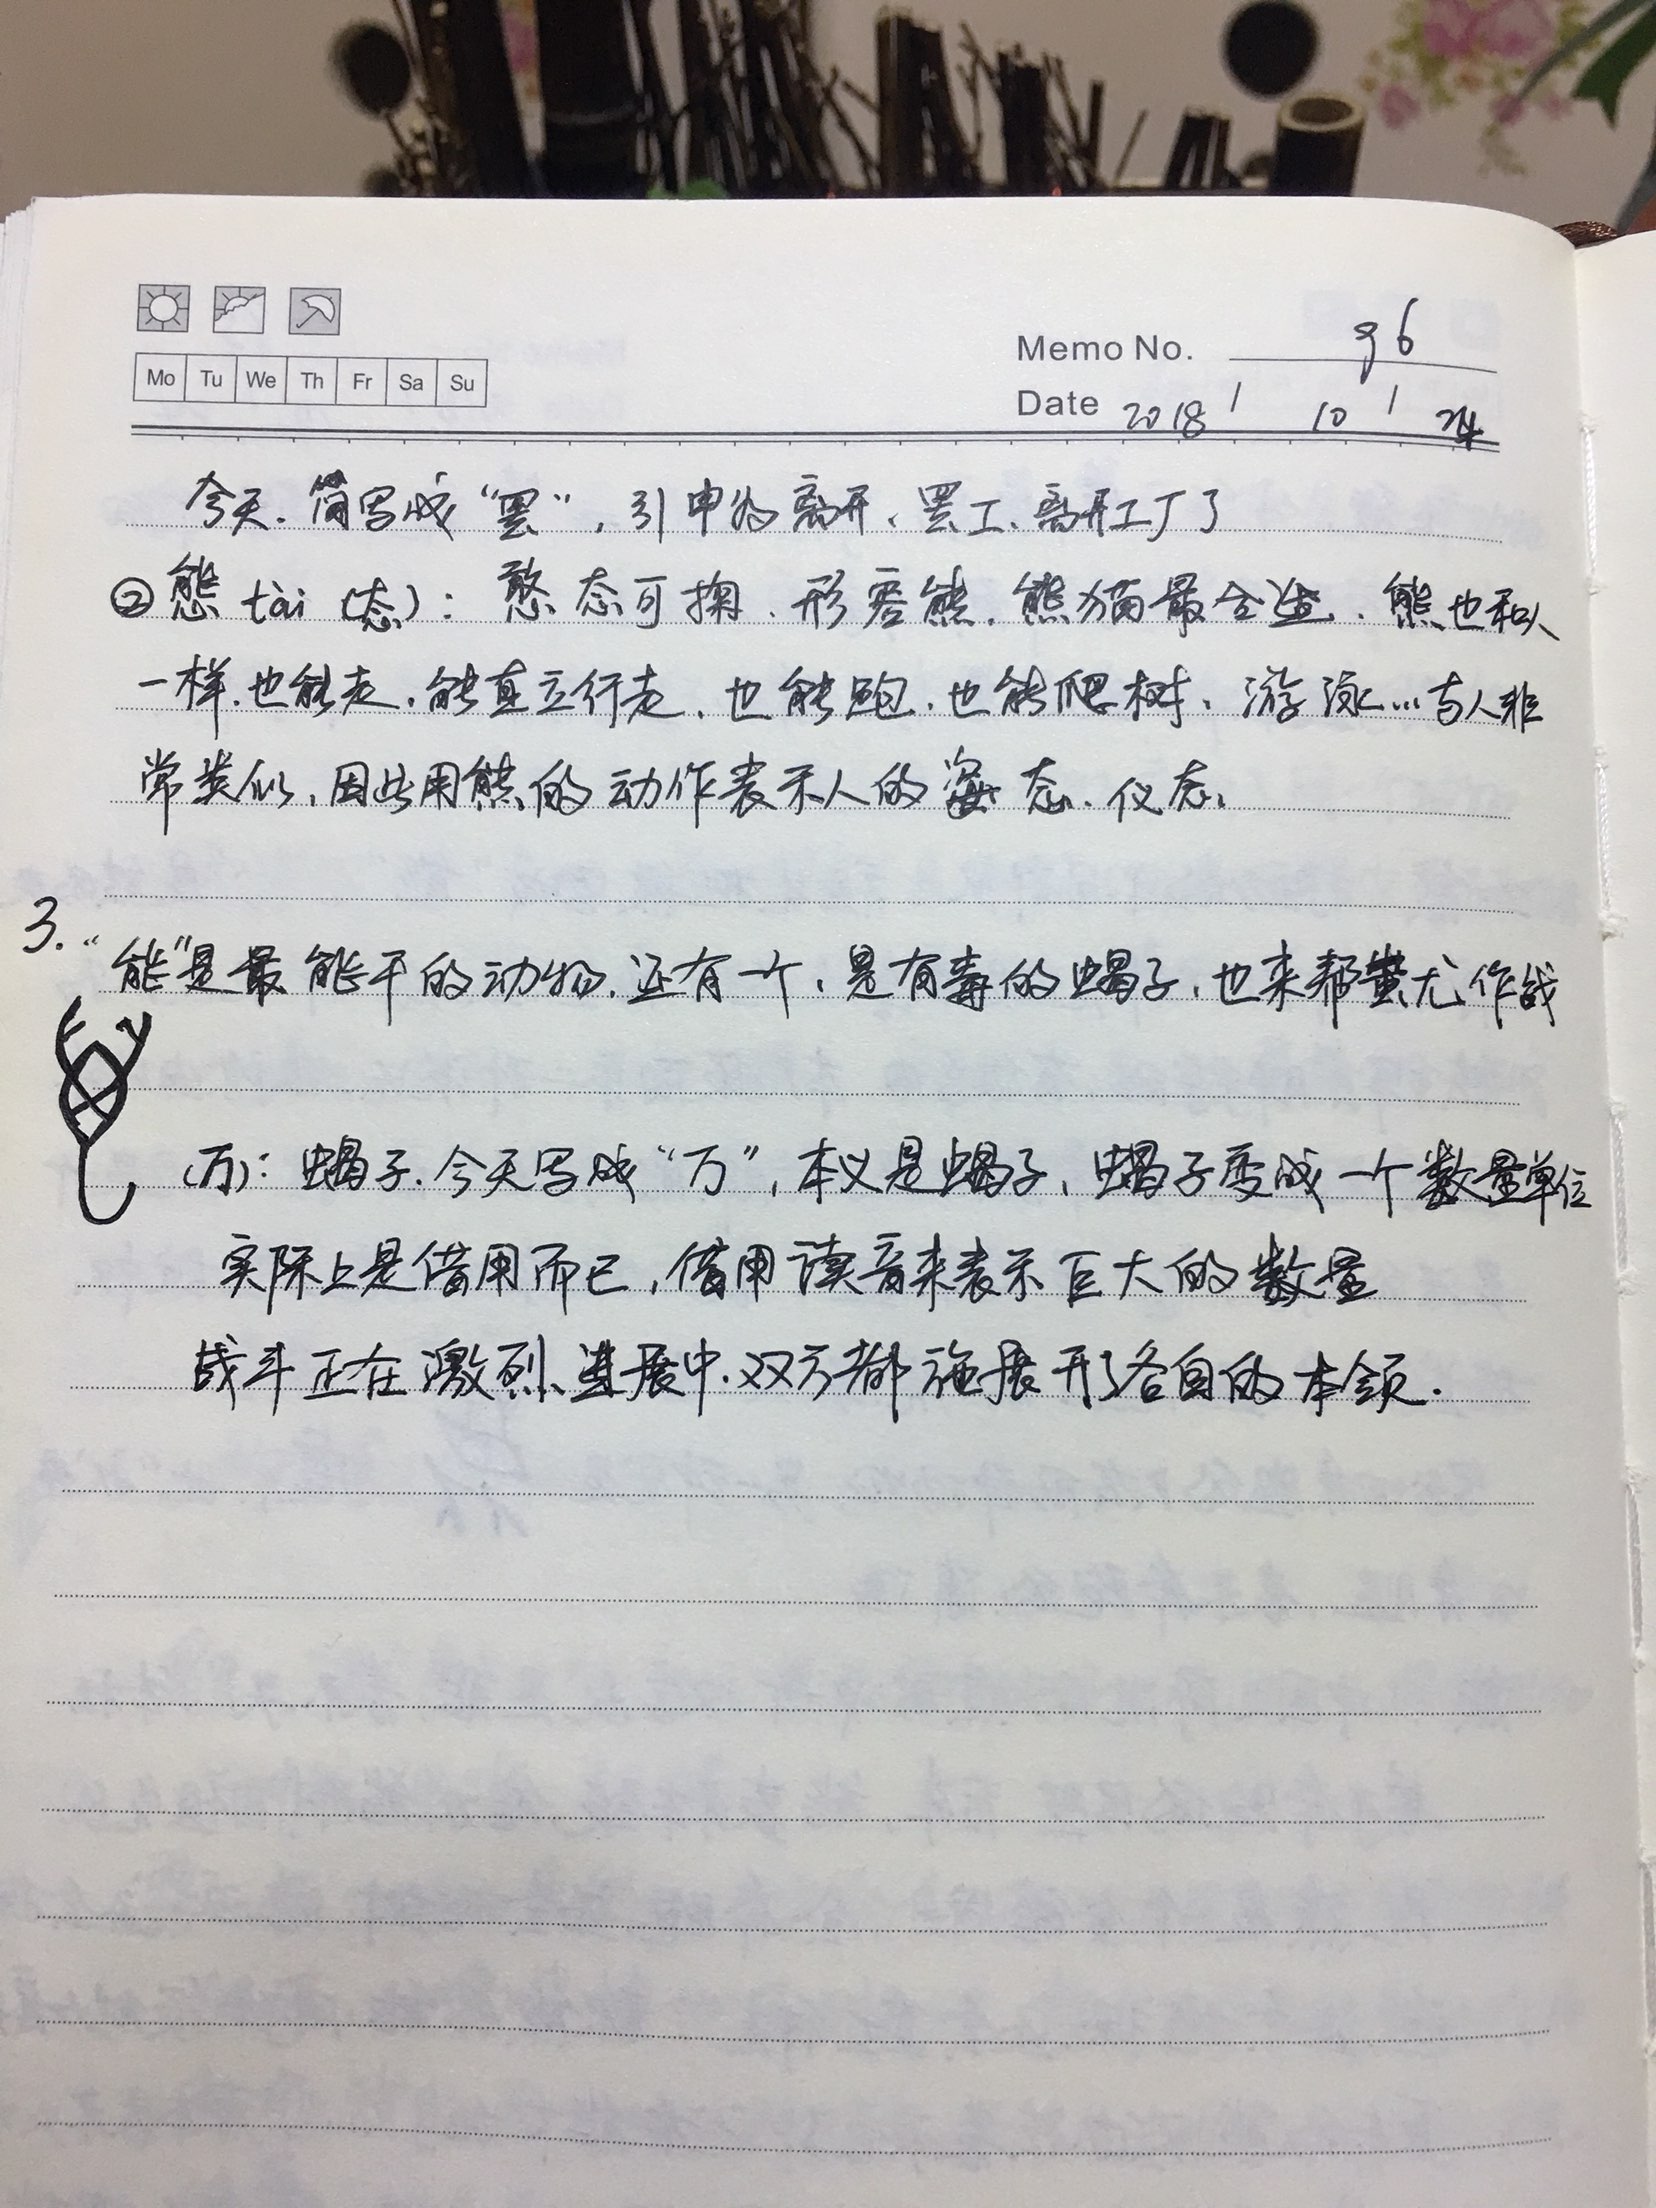 Mo Tu We Th Fr Sa Su
Memo No. 96
Date 2018 / 10 / 24
今天.简写成“罢”,引申为离开、罢工、离开工厂了
②態 tài (态):憨态可掬.形容熊.熊猫最合适.熊也和人
一样.也能走.能直立行走.也能跑.也能爬树.游泳…与人非
常类似.因此用熊的动作表示人的姿态.仪态.
3.“能”是最能干的动物.还有一个.是有毒的蝎子.也来帮蚩尤作战
(万):蝎子.今天写成“万”,本义是蝎子,蝎子变成一个数量单位
实际上是借用而已,借用读音来表示巨大的数量
战斗正在激烈进展中.双方都施展开各自的本领.